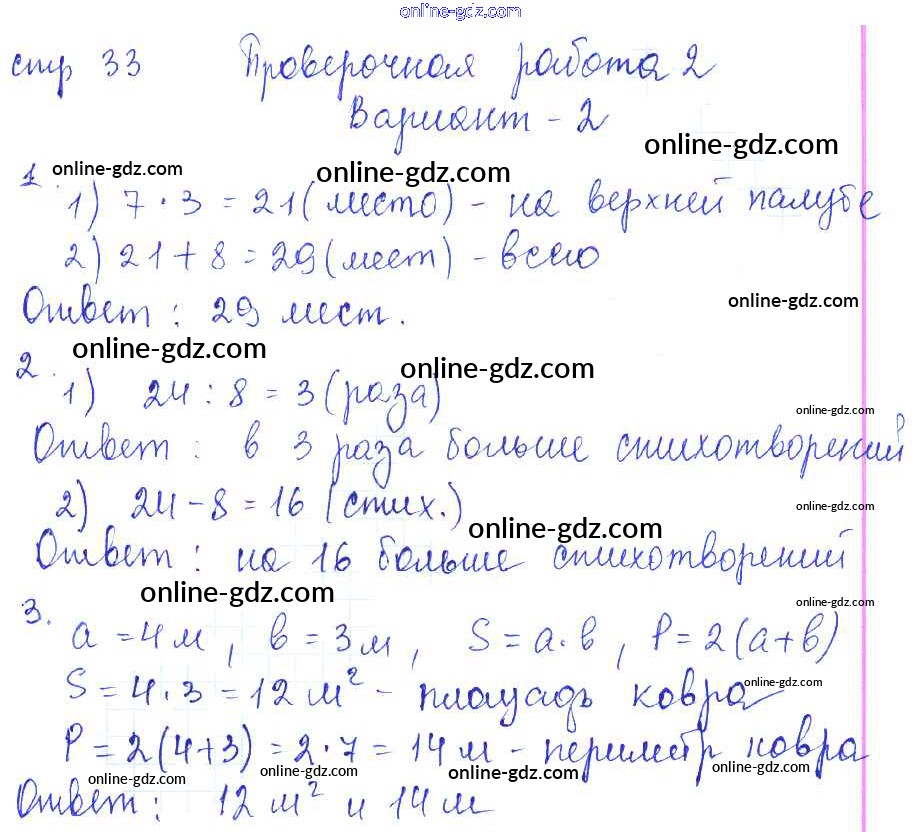 online-gdz.com
стр 33 Проверочная работа 2
Вариант - 2
online-gdz.com
online-gdz.com online-gdz.com
1. 1) 7 · 3 = 21 (место) - на верхней палубе
2) 21 + 8 = 29 (мест) - всего
Ответ : 29 мест.
online-gdz.com
online-gdz.com online-gdz.com
2. 1) 24 : 8 = 3 (раза)
online-gdz.com
Ответ : в 3 раза больше стихотворений
2) 24 - 8 = 16 (стих.)
online-gdz.com
online-gdz.com
Ответ : на 16 больше стихотворений
online-gdz.com online-gdz.com
3. a = 4 м , в = 3 м , S = a · в , P = 2 (a + в)
S = 4 · 3 = 12 м² - площадь ковра
online-gdz.com
P = 2 (4 + 3) = 2 · 7 = 14 м - периметр ковра
online-gdz.com online-gdz.com online-gdz.com online-gdz.com
Ответ : 12 м² и 14 м